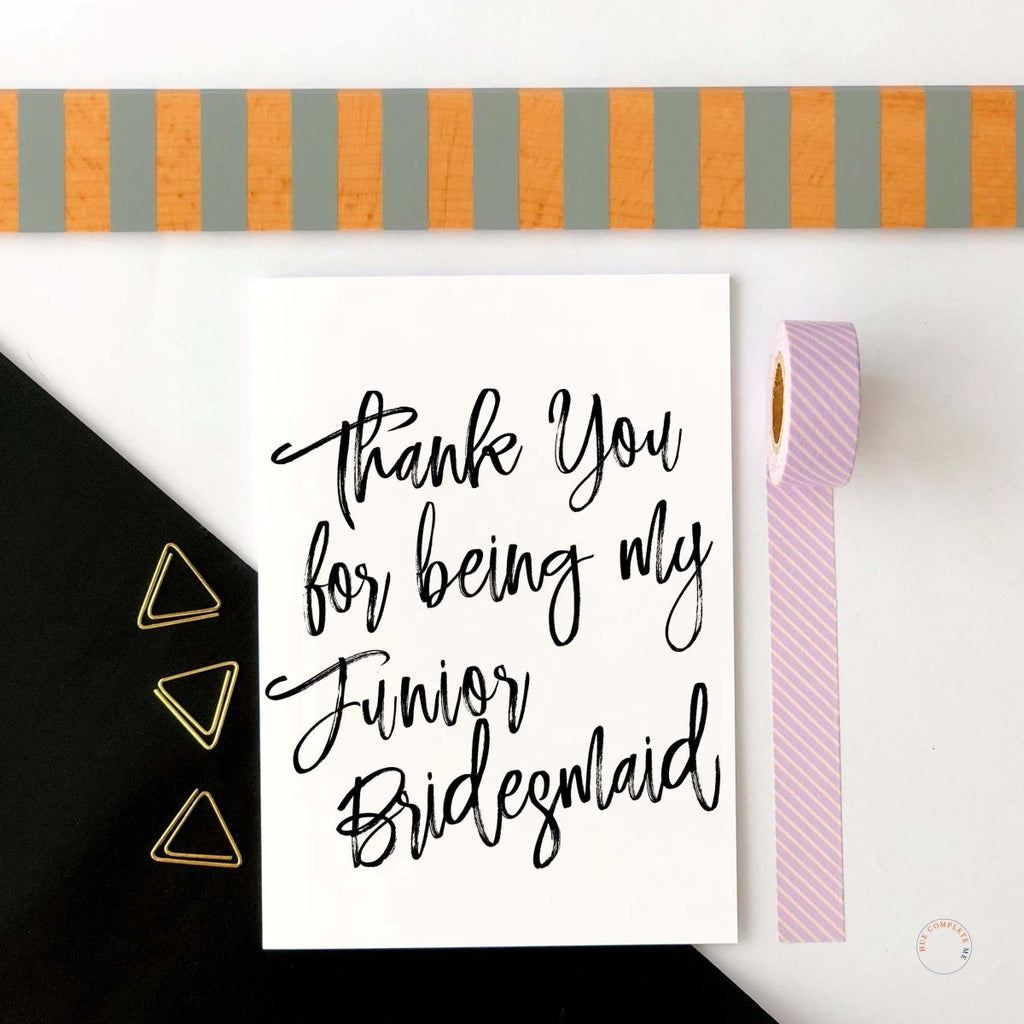 Thank You
for being my
Junior
Bridesmaid
HUE COMPLETE ME